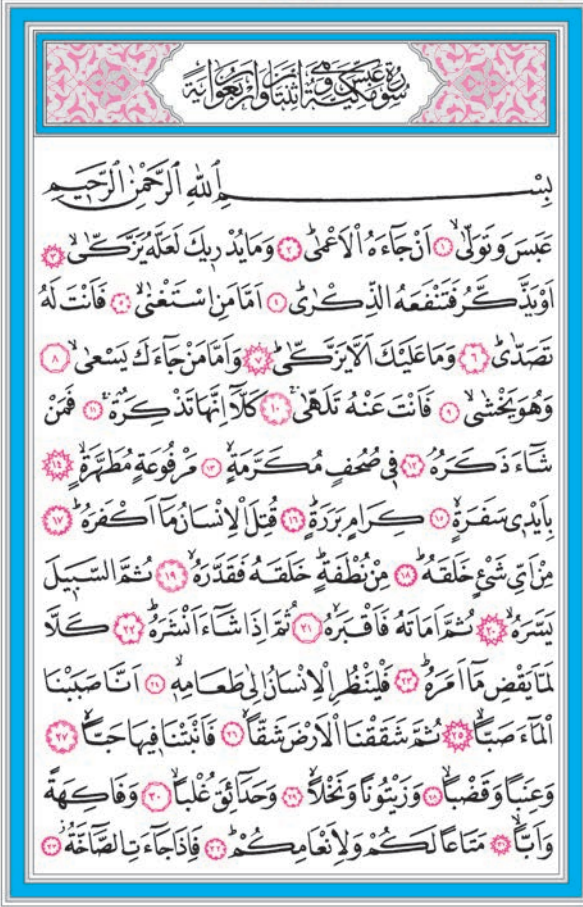 سورة عبس مكية وهي اثنتان واربعون اية
بِسْمِ اللهِ الرَّحْمٰنِ الرَّحِيمِ
عَبَسَ وَتَوَلّٰىۙ ﴿١﴾ اَنْ جَٓاءَهُ الْاَعْمٰىۜ ﴿٢﴾ وَمَا يُدْرٖيكَ لَعَلَّهُ يَزَّكّٰىۙ ﴿٣﴾
اَوْ يَذَّكَّرُ فَتَنْفَعَهُ الذِّكْرٰىۜ ﴿٤﴾ اَمَّا مَنِ اسْتَغْنٰىۙ ﴿٥﴾ فَاَنْتَ لَهُ
تَصَدّٰىۜ ﴿٦﴾ وَمَا عَلَيْكَ اَلَّا يَزَّكّٰىۜ ﴿٧﴾ وَاَمَّا مَنْ جَٓاءَكَ يَسْعٰىۙ ﴿٨﴾
وَهُوَ يَخْشٰىۙ ﴿٩﴾ فَاَنْتَ عَنْهُ تَلَهّٰىۚ ﴿١٠﴾ كَلَّٓا اِنَّهَا تَذْكِرَةٌۚ ﴿١١﴾ فَمَنْ
شَٓاءَ ذَكَرَهُۢ ﴿١٢﴾ فٖي صُحُفٍ مُكَرَّمَةٍۙ ﴿١٣﴾ مَرْفُوعَةٍ مُطَهَّرَةٍۙ ﴿١٤﴾
بِاَيْدٖي سَفَرَةٍۙ ﴿١٥﴾ كِرَامٍ بَرَرَةٍۜ ﴿١٦﴾ قُتِلَ الْاِنْسَانُ مَٓا اَكْفَرَهُۜ ﴿١٧﴾
مِنْ اَيِّ شَيْءٍ خَلَقَهُۜ ﴿١٨﴾ مِنْ نُطْفَةٍۜ خَلَقَهُ فَقَدَّرَهُۙ ﴿١٩﴾ ثُمَّ السَّبٖيلَ
يَسَّرَهُۙ ﴿٢٠﴾ ثُمَّ اَمَاتَهُ فَاَقْبَرَهُۙ ﴿٢١﴾ ثُمَّ اِذَا شَٓاءَ اَنْشَرَهُۜ ﴿٢٢﴾ كَلَّا
لَمَّا يَقْضِ مَٓا اَمَرَهُۜ ﴿٢٣﴾ فَلْيَنْظُرِ الْاِنْسَانُ اِلٰى طَعَامِهٖۙ ﴿٢٤﴾ اَنَّا صَبَبْنَا
الْمَٓاءَ صَبًّاۙ ﴿٢٥﴾ ثُمَّ شَقَقْنَا الْاَرْضَ شَقًّاۙ ﴿٢٦﴾ فَاَنْبَتْنَا فٖيهَا حَبًّاۙ ﴿٢٧﴾
وَعِنَبًا وَقَضْبًاۙ ﴿٢٨﴾ وَزَيْتُونًا وَنَخْلًاۙ ﴿٢٩﴾ وَحَدَٓائِقَ غُلْبًاۙ ﴿٣٠﴾ وَفَاكِهَةً
وَاَبًّاۙ ﴿٣١﴾ مَتَاعًا لَكُمْ وَلِاَنْعَامِكُمْۜ ﴿٣٢﴾ فَاِذَا جَٓاءَتِ الصَّٓاخَّةُۘ ﴿٣٣﴾